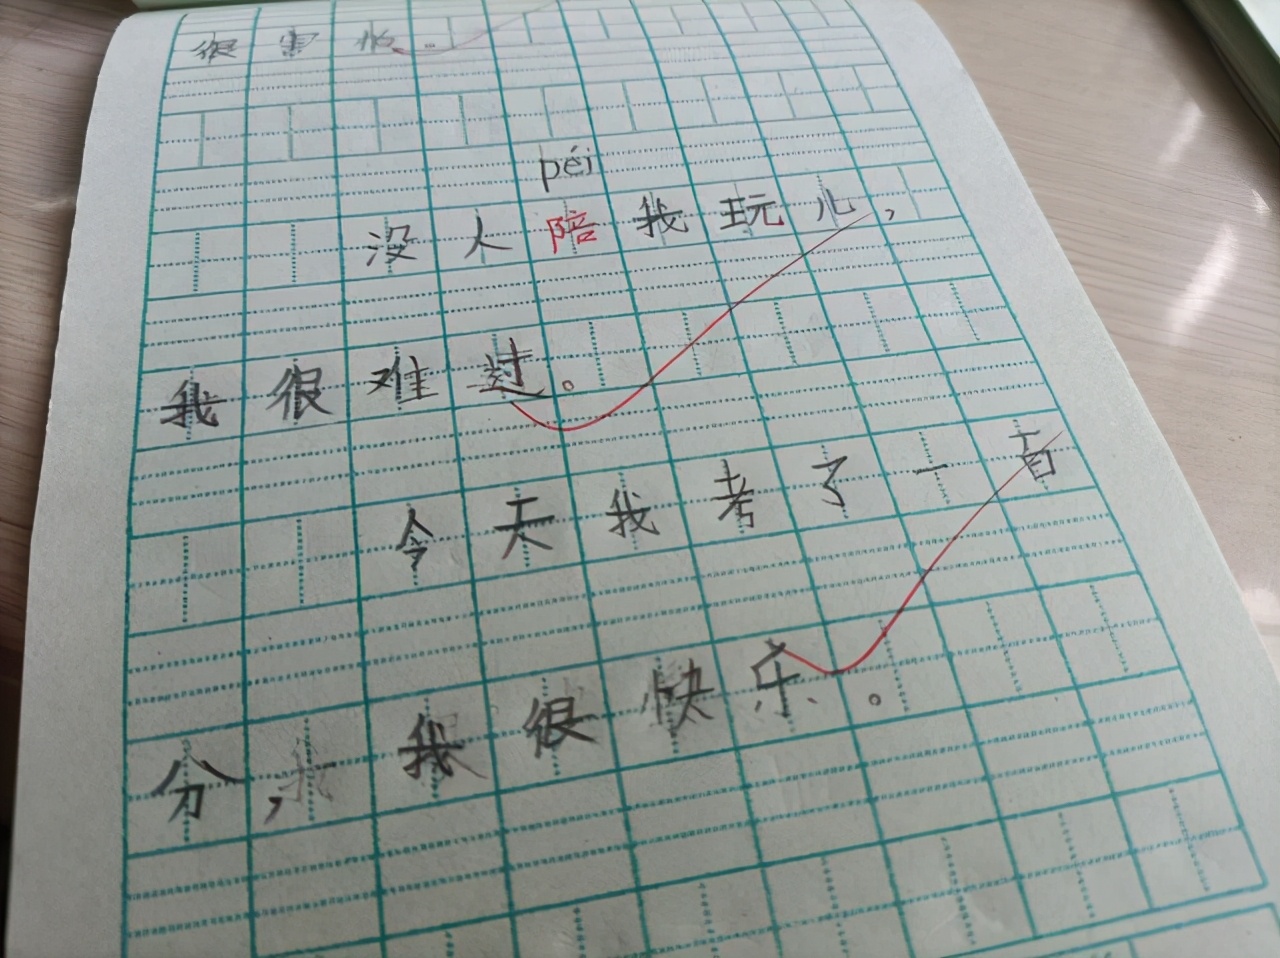 很害怕。
péi
没人陪我玩儿，
我很难过。
今天我考了一百
分，我很快乐。